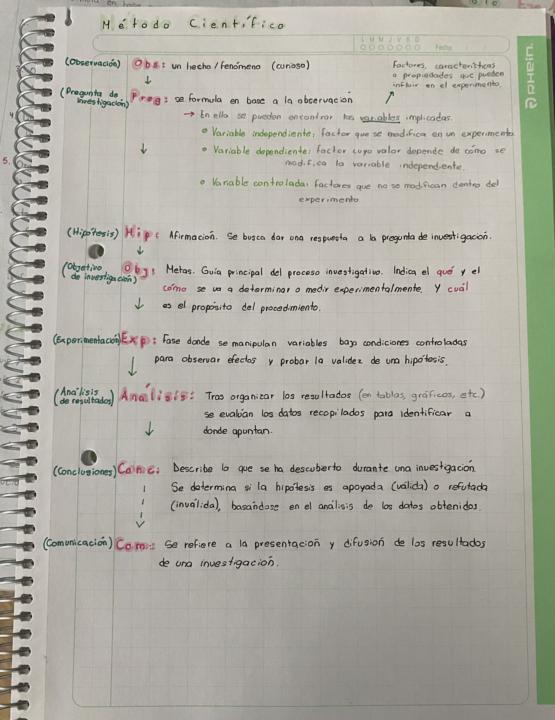 Método Científico
L M M J V S D
Fecha
(Observación) Obs: un hecho / fenómeno (curioso)
Factores, características
o propiedades que pueden
influir en el experimento.
(Pregunta de
investigación) Preg: se formula en base a la observación
→ En ella se pueden encontrar las variables implicadas.
• Variable independiente: factor que se modifica en un experimento
• Variable dependiente: factor cuyo valor depende de cómo se
modifica la variable independiente.
• Variable controlada: factores que no se modifican dentro del
experimento.
(Hipótesis) Hip: Afirmación. Se busca dar una respuesta a la pregunta de investigación.
(Objetivo
de investigación) Obj: Metas. Guía principal del proceso investigativo. Indica el qué y el
cómo se va a determinar o medir experimentalmente. Y cuál
es el propósito del procedimiento.
(Experimentación) Exp: Fase donde se manipulan variables bajo condiciones controladas
para observar efectos y probar la validez de una hipótesis.
(Análisis
de resultados) Análisis: Tras organizar los resultados (en tablas, gráficos, etc.)
se evalúan los datos recopilados para identificar a
donde apuntan.
(Conclusiones) Conc: Describe lo que se ha descubierto durante una investigación.
Se determina si la hipótesis es apoyada (válida) o refutada
(inválida), basándose en el análisis de los datos obtenidos.
(Comunicación) Com: Se refiere a la presentación y difusión de los resultados
de una investigación.
5.